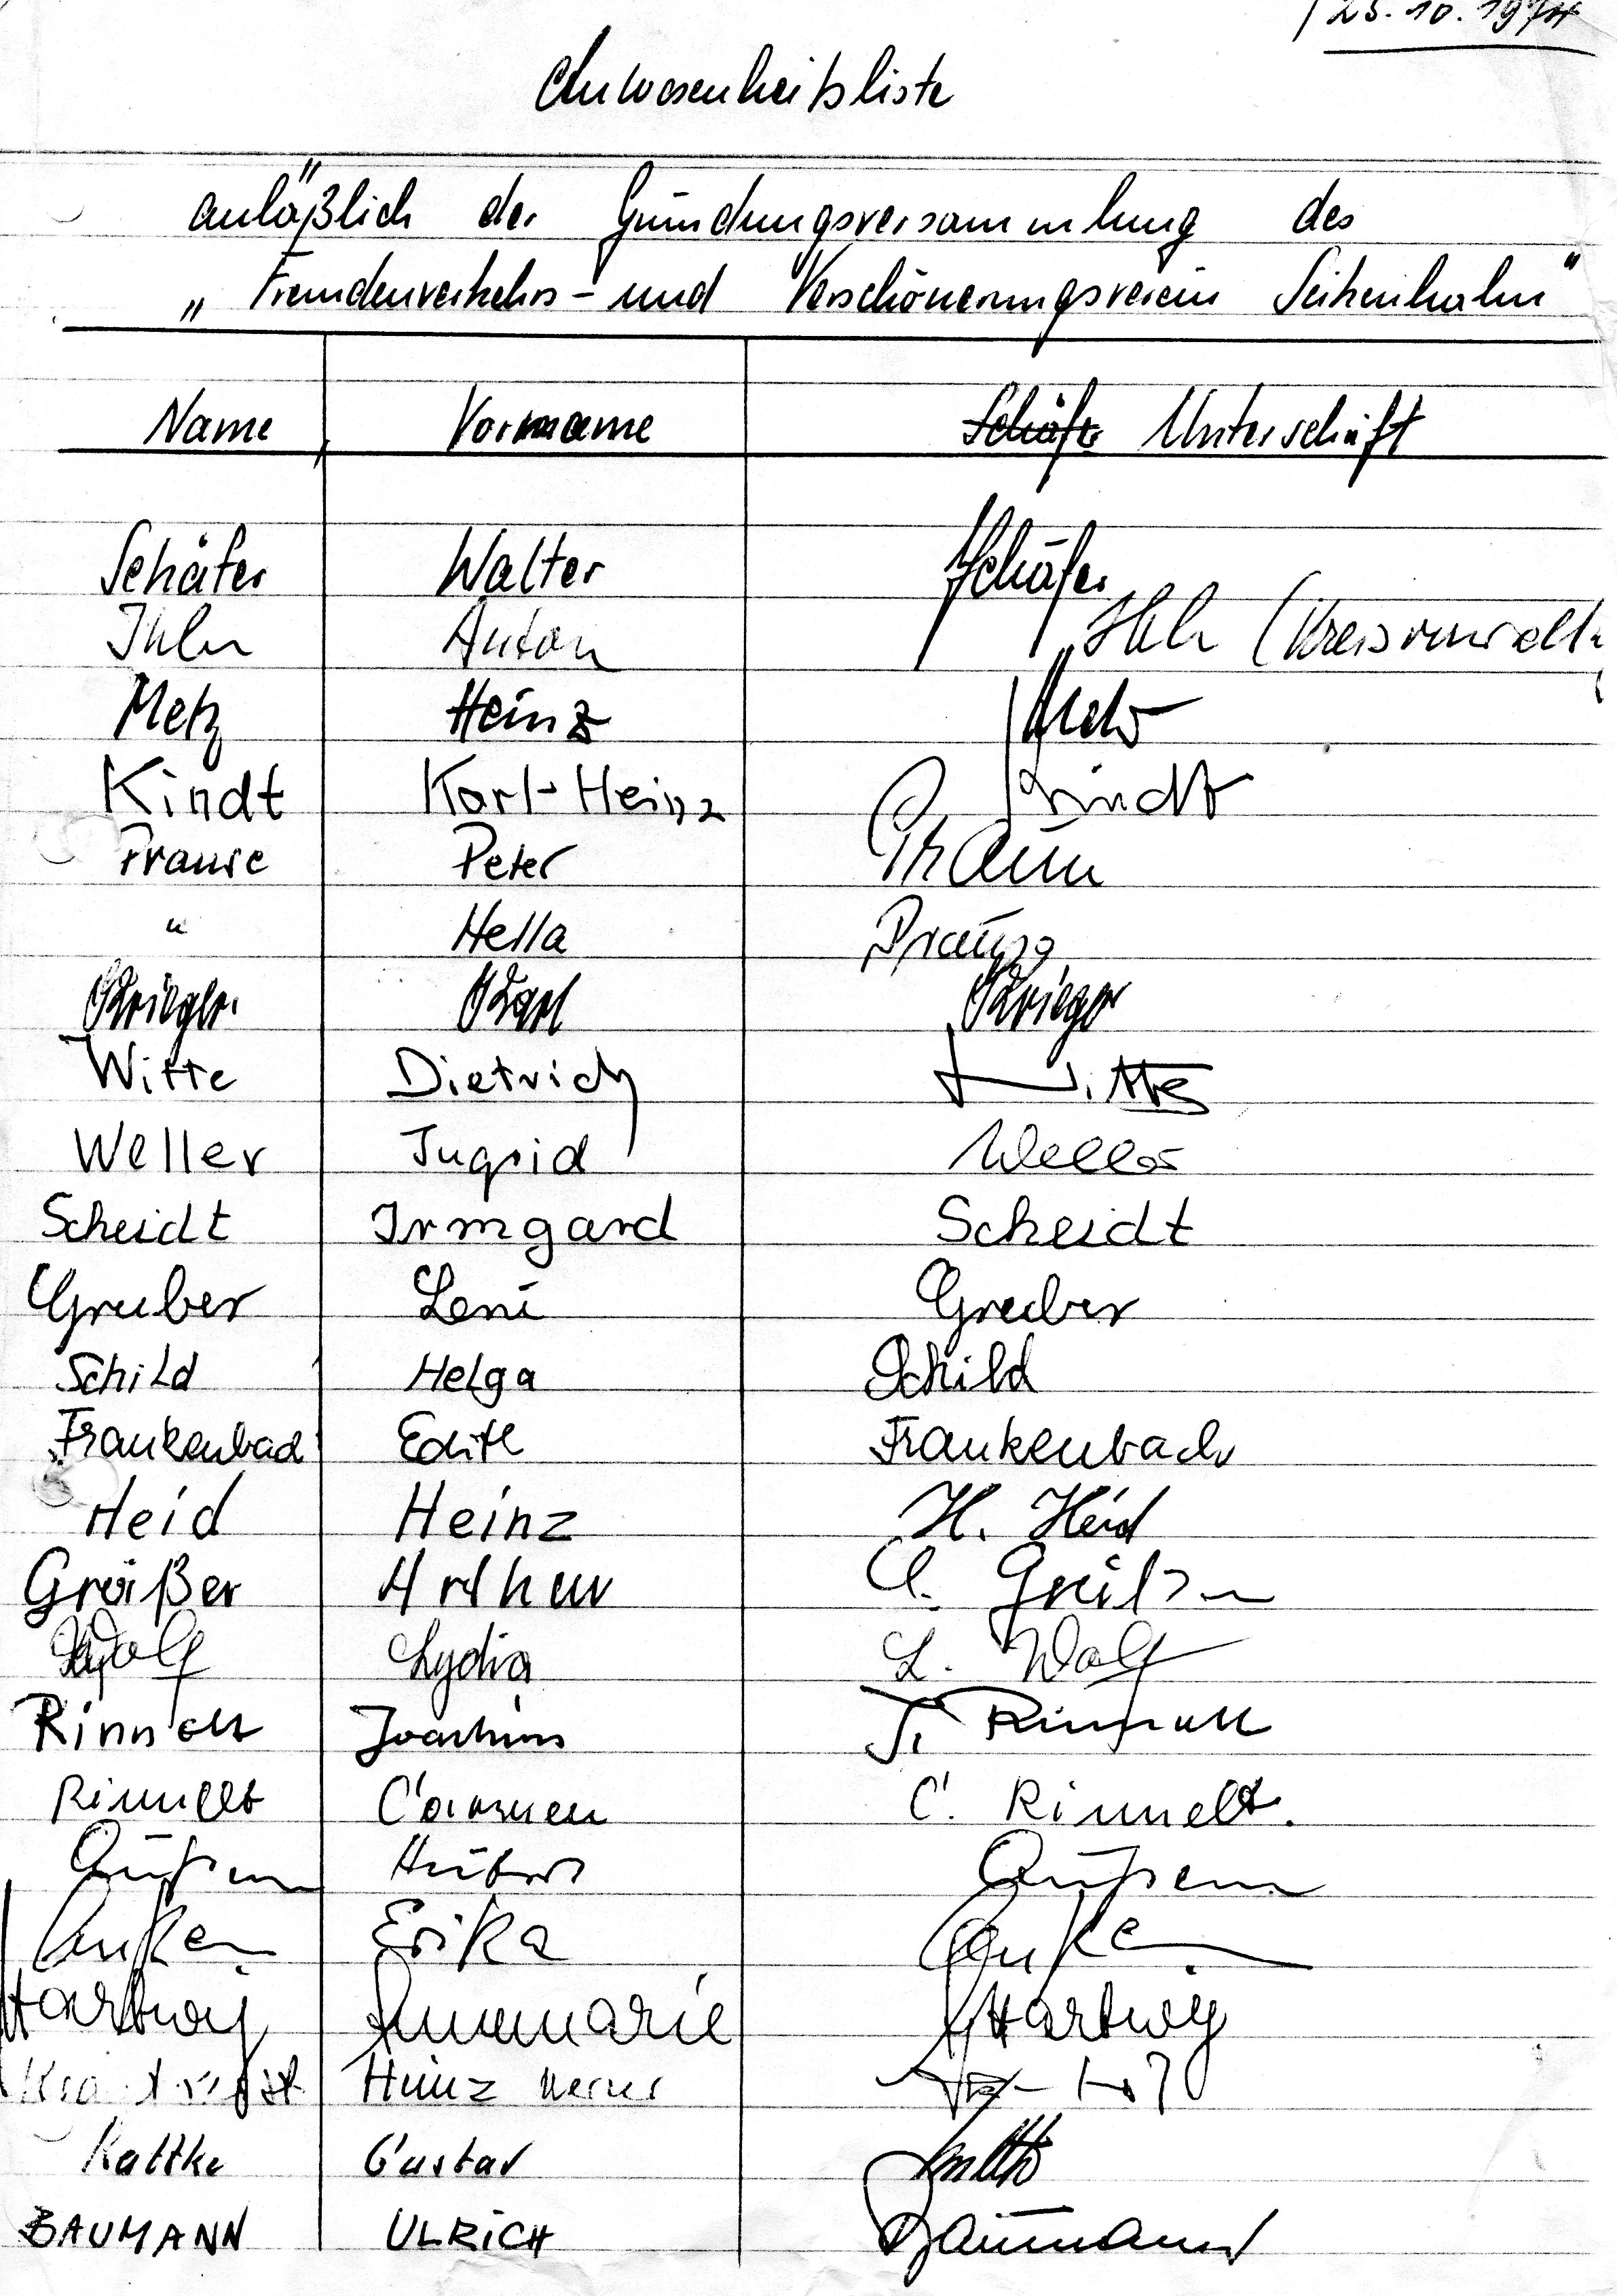 23.10.1974
Anwesenheitsliste
anläßlich der Gründungsversammlung des
„Fremdenverkehrs- und Verschönerungsverein Seitzenhahn"
Name Vorname Schäfer Unterschrift
Schäfer Walter Schäfer
Ihln Anton
Metz Heinz Metz
Kindt Karl-Heinz Kindt
Prause Peter Prause
" Hella Prause
Krieger Karl Krieger
Witte Dietrich Witte
Weller Ingrid Weller
Scheidt Irmgard Scheidt
Gruber Leni Gruber
Schild Helga Schild
Frankenbach Edith Frankenbach
Heid Heinz H. Heid
Gräßer Arthur A.
Wolf Lydia L. Wolf
Rinnelt Joachim J. Rinnelt
Rinnelt Carmen C. Rinnelt.
Erika
Hartwig Annemarie Hartwig
Heinz Werner
Kattke Gustav
BAUMANN ULRICH Baumann